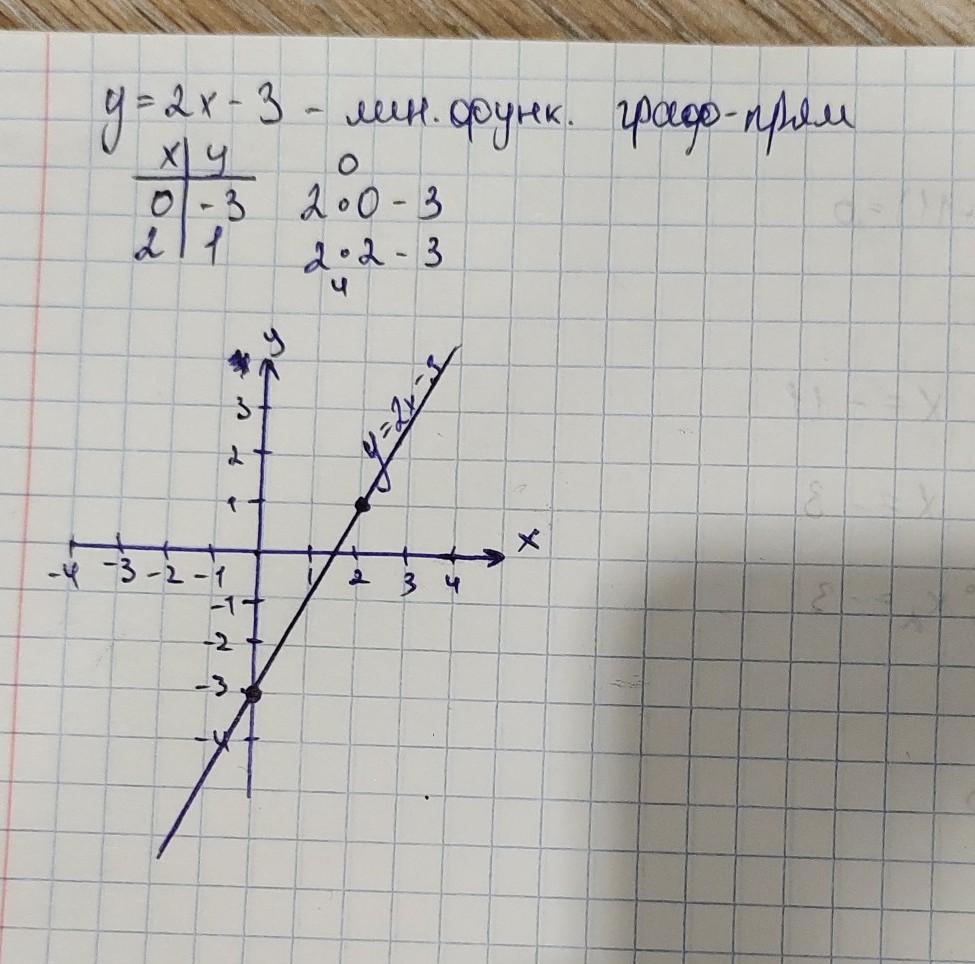 y = 2x - 3 - лин. функк. графо-прям
x y
0
0 -3 2•0 - 3
2 1 2•2 - 3
4
y
3
y=2x-3
2
1
x
-4 -3 -2 -1 1 2 3 4
-1
-2
-3
-4